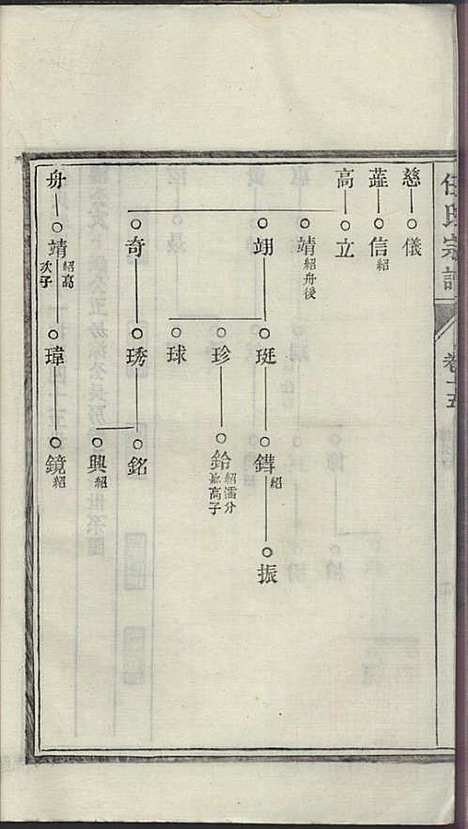 任氏宗譜
卷十五
慈 儀
蓝 信 紹
高 立
靖 紹舟後
翊 珽 鏵 紹 振
珍 鈴 紹濡分
長高子
球
奇 琇 銘
興 紹
舟 靖 紹高
次子 瑋 鏡 紹